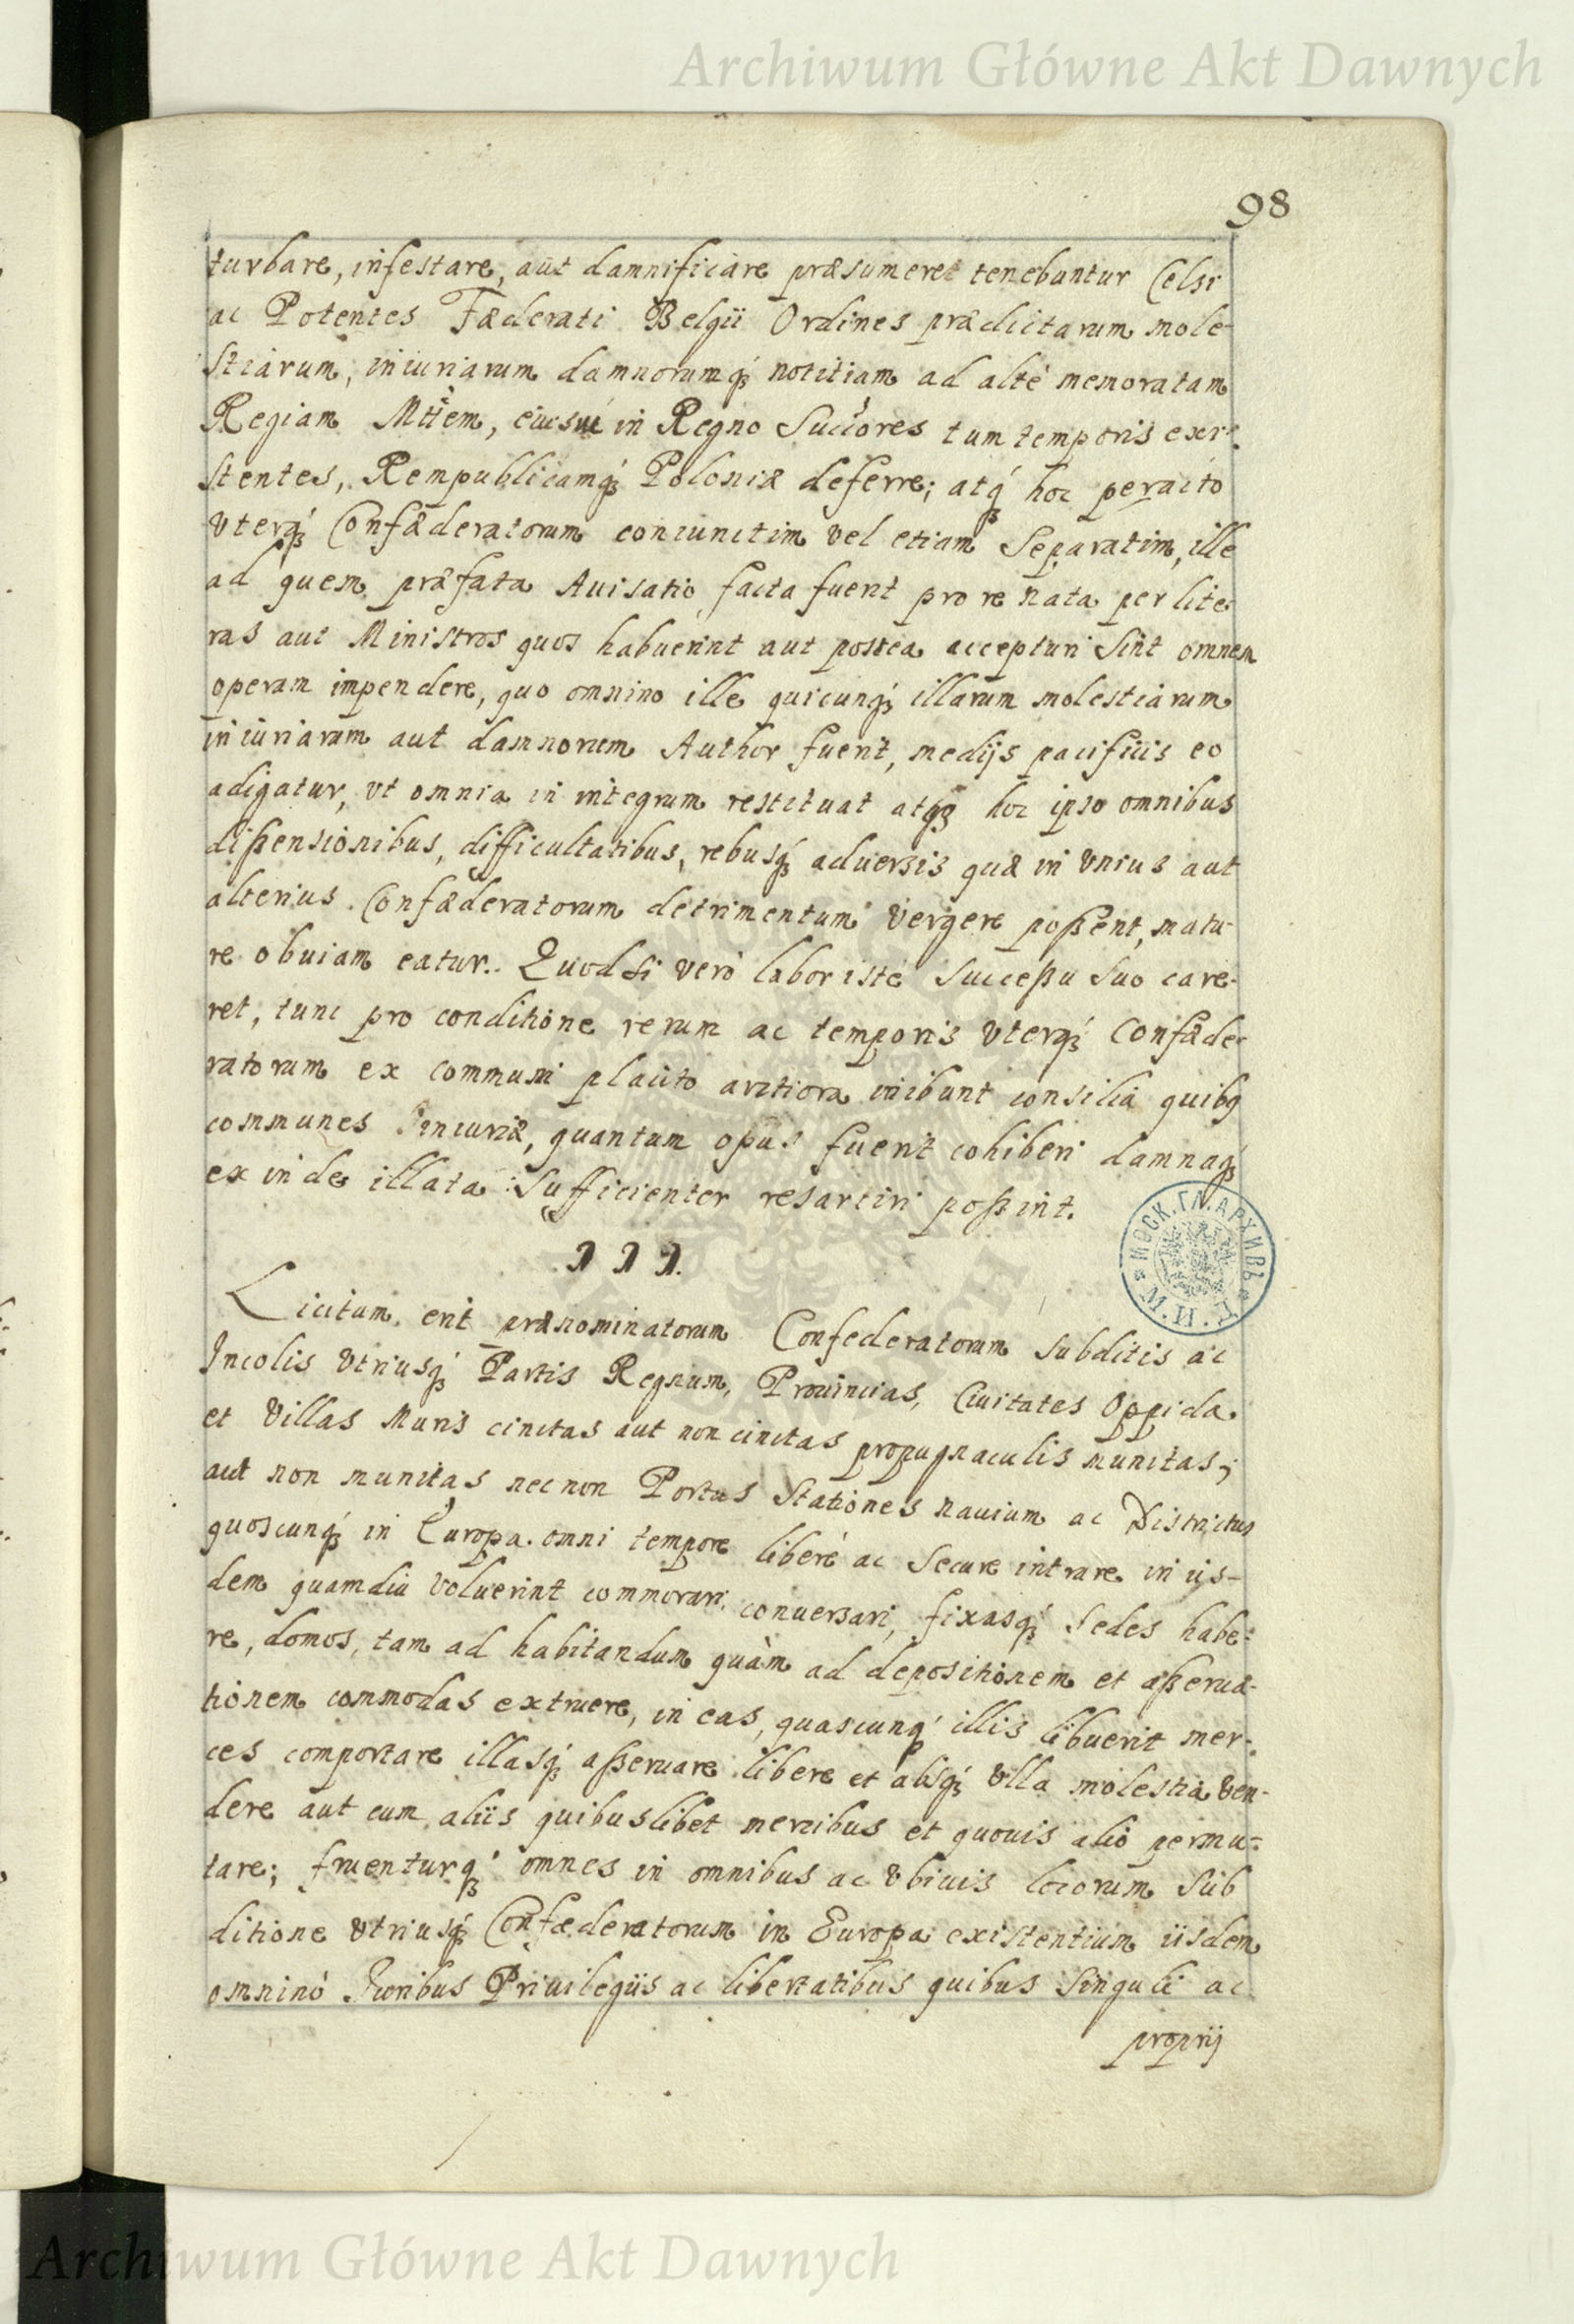 Archiwum Główne Akt Dawnych
98
turbare, infestare, aut damnificare præsumeret tenebuntur Celsi
ac Potentes Fæderati Belgii Ordines prædictarum mole-
stiarum, iniuriarum damnorumq́ꝫ notitiam ad altè memoratam
Regiam Mttem, eiusúé in Regno Succ̃ores tum temporis exi-
stentes, Rempublicamq́ꝫ Poloniæ deferre; atq́ꝫ hoc peracto
vterq́ꝫ Confæderatorum coniunctim vel etiam Separatim, ille
ad quem præfata Auisatio facta fuerit pro re nata per lite-
ras aut Ministros quos habuerint aut postea accepturi Sint omnem
operam impendere, quo omnino ille quicunq́ꝫ illarum molestiarum
iniuriarum aut damnorum Author fuerit, medijs pacificis eo
adigatur, vt omnia in integrum restituat atqꝫ hoc ipso omnibus
dißensionibus, difficultatibus, rebusq́ꝫ aduersis quæ in vnius aut
alterius Confæderatorum detrimentum vergere poßent, matu-
re obuiam eatur. Quod si verò labor iste Succeßu Suo care-
ret, tunc pro conditione rerum ac temporis vterq́ꝫ Confæde-
ratorum ex communi placito arctiora inibunt consilia quibꝫ
communes Iniuriæ, quantum opus fuerit cohiberi damnaq́ꝫ
ex inde illata Sufficienter resarciri poßint.
III.
Licitum erit prænominatorum Confederatorum Subditis ac
Incolis vtriusq́ꝫ Partis Regnum, Prouincias, Ciuitates Oppida
et Villas Muris cinctas aut non cinctas propugnaculis munitas,
aut non munitas nec non Portus Stationes nauium ac Districtus
quoscunq́ꝫ in Europa omni tempore liberè ac Secure intrare in ijs-
dem quamdiu voluerint commorari, conuersari, fixasq́ꝫ Sedes habe-
re, domos, tam ad habitandum quàm ad depositionem et aßerua-
tionem commodas extruere, in eas, quascunq́ꝫ illis libuerit mer-
ces comportare illasq́ꝫ aßeruare libere et absq́ꝫ vlla molestia ven-
dere aut cum aliis quibuslibet mercibus et quouis alio permu-
tare; fruenturq́ꝫ omnes in omnibus ac vbiuis locorum Sub
ditione vtriusq́ꝫ Confæderatorum in Europa existentium iisdem
omninò Iuribus Priuilegiis ac libertatibus quibus Singuli ac
proprij
МОСК. ГЛ. АРХИВЪ
М. И. Д.
Archiwum Główne Akt Dawnych